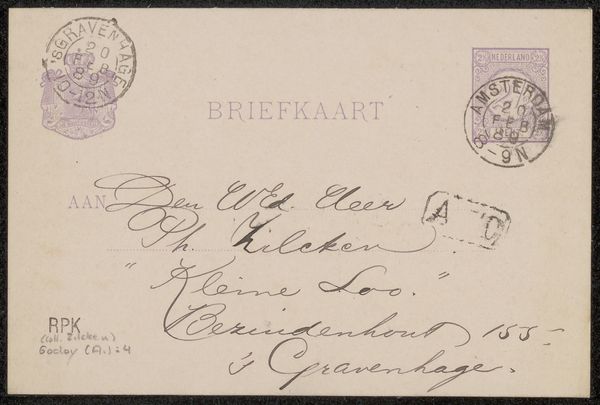 'S GRAVENHAGE
20
FEB
89
10-12N
NEDERLAND
AMSTERDAM
20
FEB
89
8-9N
BRIEFKAART
AAN Den WEd. Heer
Ph. Zilcken.
"Kleine Loo."
Bezuidenhout 155
's Gravenhage.
A
RPK
(coll. Zilcken)
Godoy (A.): 4